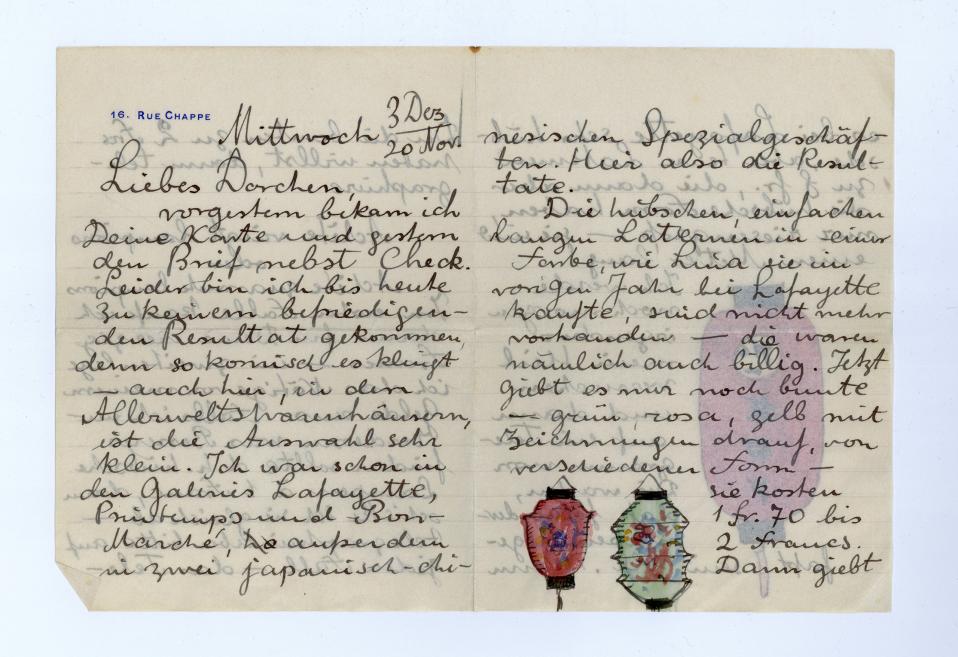 16. RUE CHAPPE
Mittwoch 3 Dez
20 Nov.
Liebes Dorchen,
vorgestern bekam ich
Deine Karte und gestern
den Brief nebst Check.
Leider bin ich bis heute
zu keinem befriedigen-
den Resultat gekommen,
denn so komisch es klingt
— auch hier, in den
Allerweltswarenhäusern,
ist die Auswahl sehr
klein. Ich war schon in
den Galeries Lafayette,
Printemps und Bon-
Marché, außerdem
in zwei japanisch-chi-
nesischen Spezialgeschäf-
ten. Hier also die Resul-
tate.
Die hübschen, einfachen
langen Laternen in einer
Farbe, wie Lina sie im
vorigen Jahr bei Lafayette
kaufte, sind nicht mehr
vorhanden — die waren
nämlich auch billig. Jetzt
giebt es nur noch bunte
— grün, rosa, gelb mit
Zeichnungen drauf, von
verschiedener Form —
sie kosten
1 fr. 70 bis
2 Francs.
Dann giebt